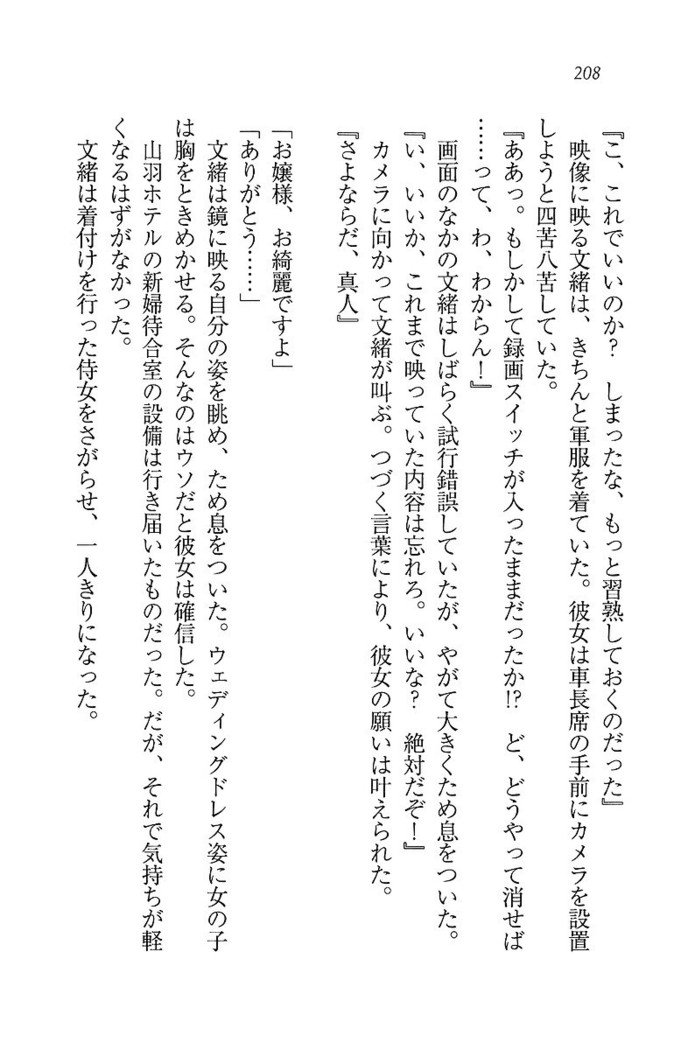 208
『こ、これでいいのか?　しまったな、もっと習熟しておくのだった』
　映像に映る文緒は、きちんと軍服を着ていた。彼女は車長席の手前にカメラを設置
しようと四苦八苦していた。
『ああっ。もしかして録画スイッチが入ったままだったか!?　ど、どうやって消せば
……って、わ、わからん!』
　画面のなかの文緒はしばらく試行錯誤していたが、やがて大きくため息をついた。
『い、いいか、これまで映っていた内容は忘れろ。いいな?　絶対だぞ!』
　カメラに向かって文緒が叫ぶ。つづく言葉により、彼女の願いは叶えられた。
『さよならだ、真人』
「お嬢様、お綺麗ですよ」
「ありがとう……」
　文緒は鏡に映る自分の姿を眺め、ため息をついた。ウェディングドレス姿に女の子
は胸をときめかせる。そんなのはウソだと彼女は確信した。
　山羽ホテルの新婦待合室の設備は行き届いたものだった。だが、それで気持ちが軽
くなるはずがなかった。
　文緒は着付けを行った侍女をさがらせ、一人きりになった。